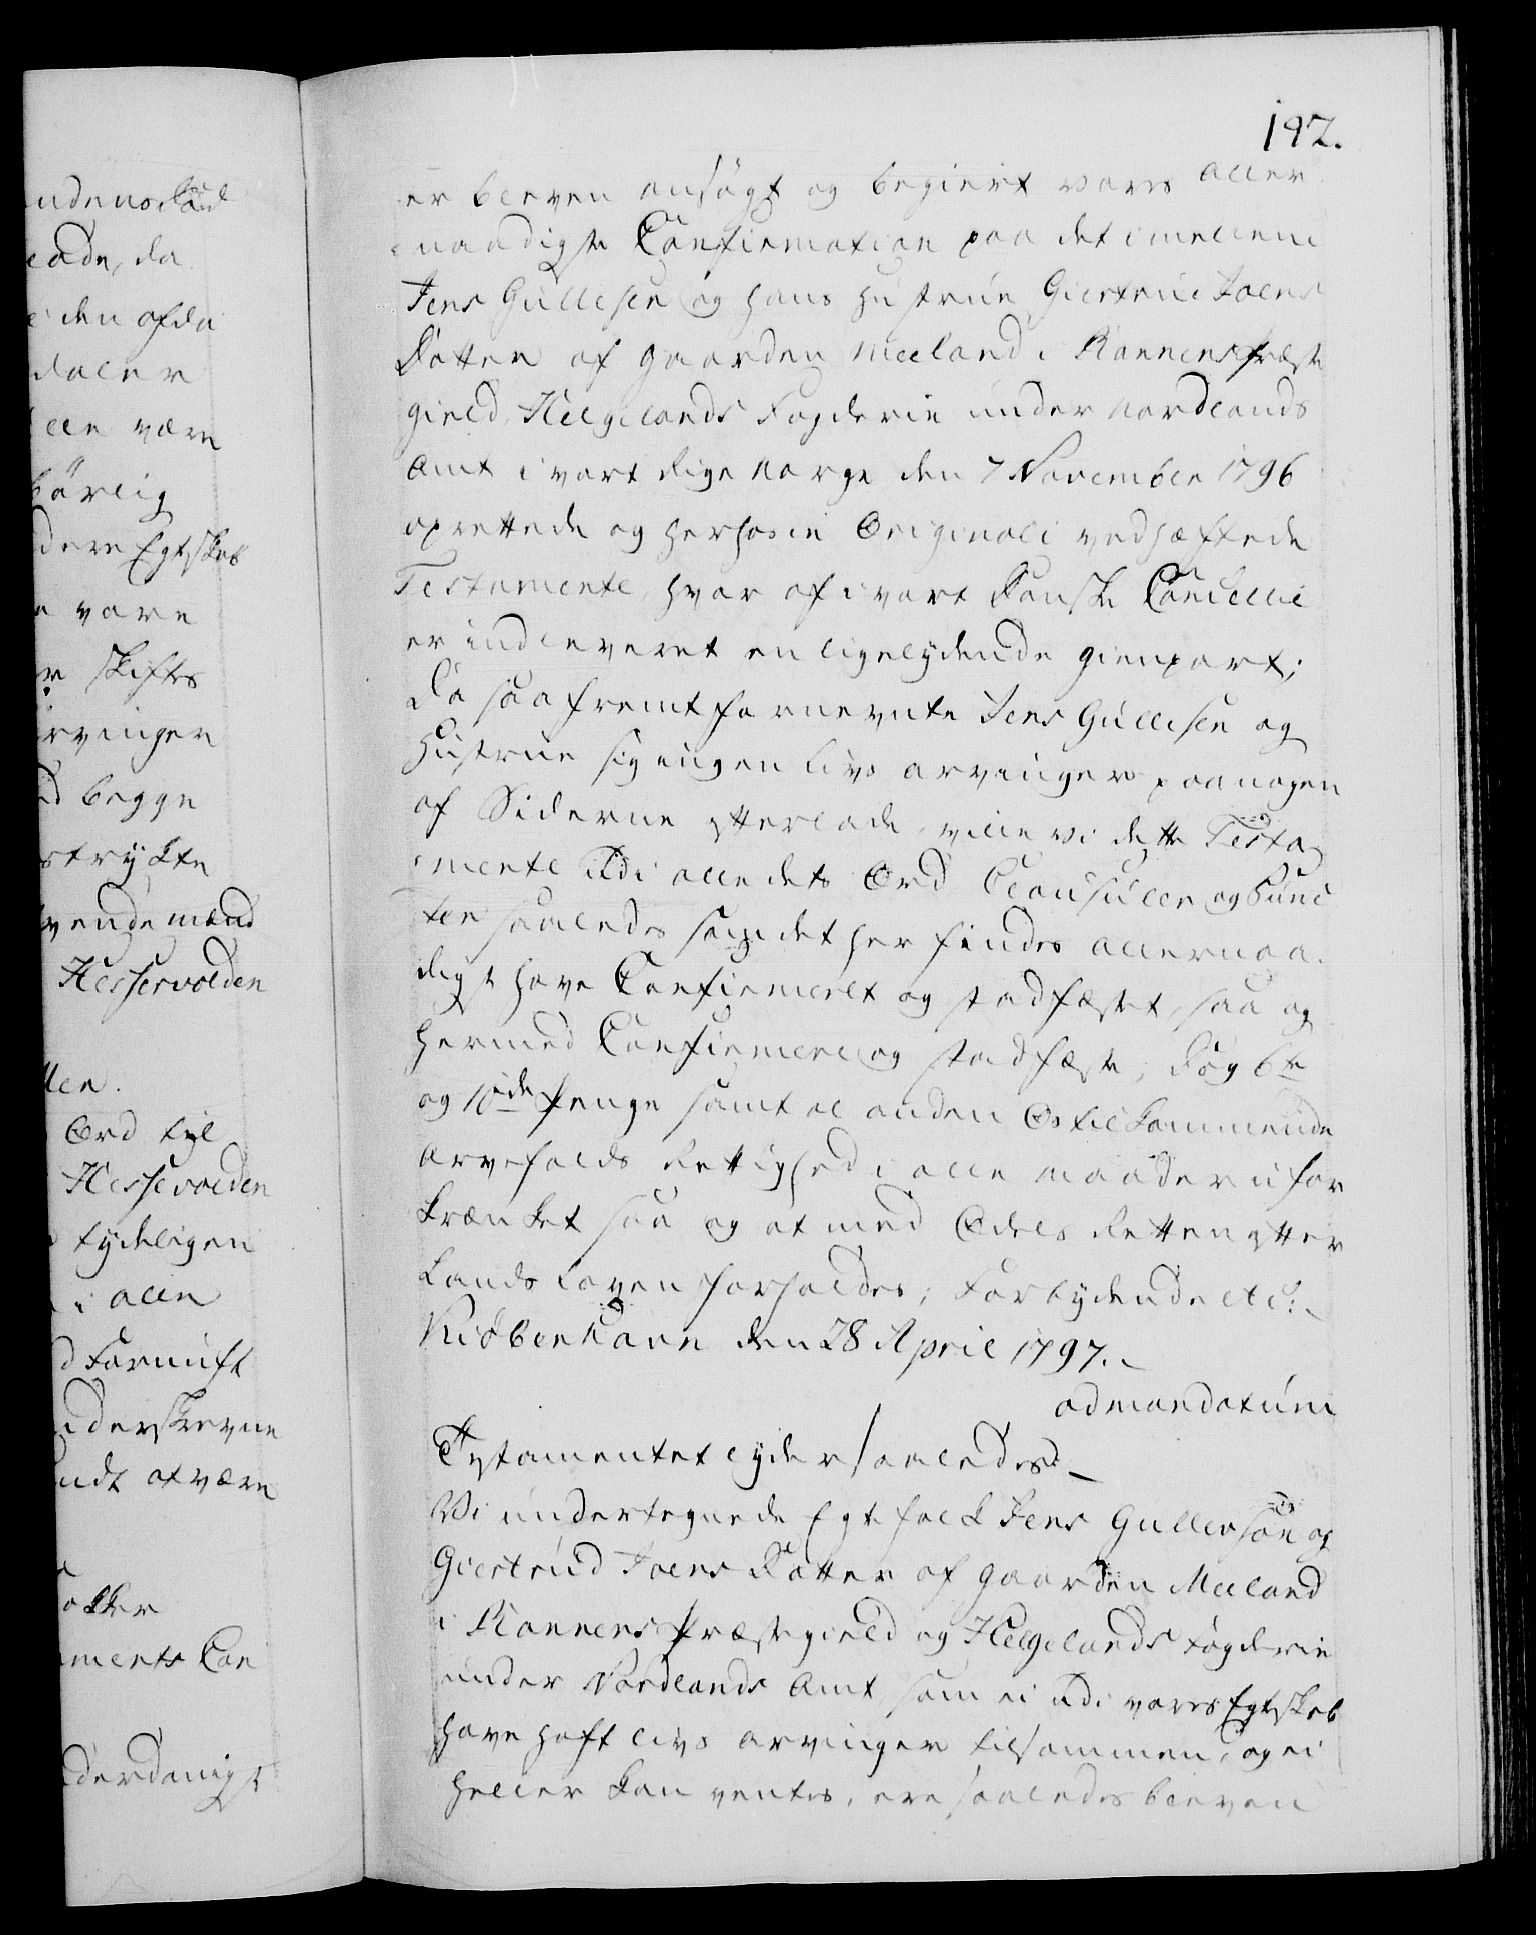 192.
er bleven ansøgt og begiert vores aller
naadigste Confirmation paa det imellem
Jens Gullesen og hans Hustrue Giertrue Joens
Datter af Gaarden Meeland i Rannens Præste
gield, Helgelands Fogderie under Nordlands
Amt i vort Rige Norge den 7 November 1796
oprettede og herhos in Originali vedhæftede
Testamente, hvor af i vort Danske Cancellie
er indleveret en ligelydende Gienpart;
Da saafremt fornevnte Jens Gullesen og
Hustrue sig ingen Livs Arvinger paa nogen
af Siderne efterlade, ville vi dette Testa
mente udi alle dets Ord Clausuler og Punc
ter saaledes som det her findes allernaa
digst have Confirmeret og stadfæstet, saa og
hermed Confirmere og stadfæste; Dog 6te
og 10de Penge samt al anden Os tilkommende
Arvefalds Rettighed i alle maader ufor
krænket saa og at med Odels Retten efter
Lands Loven forholdes; Forbydende etc:
Kiøbenhavn den 28 April 1797.
ad mandatum
Testamentet lyder saaledes
Vi undertegnede Egtefolk Jens Gullersøn og
Giertrud Joens Datter af Gaarden Meeland
i Rannens Præstegield og Helgelands Fogderie
under Nordlands Amt, som ei udi vores Egteskab
have haft Livs Arvinger tilsammen, og ei
heller kan ventes, ere saaledes bleven
eade, da
den afdø
daler
lle være
børlig
dere Egteskab
vore
skifte
rvinger
d begge
strykte
vende mænd
Hesservolden
Ord til
Hessevolden
tydeligen
i alle
d Fornuft
derskrevne
ndt at være
ments Con
derdanigst